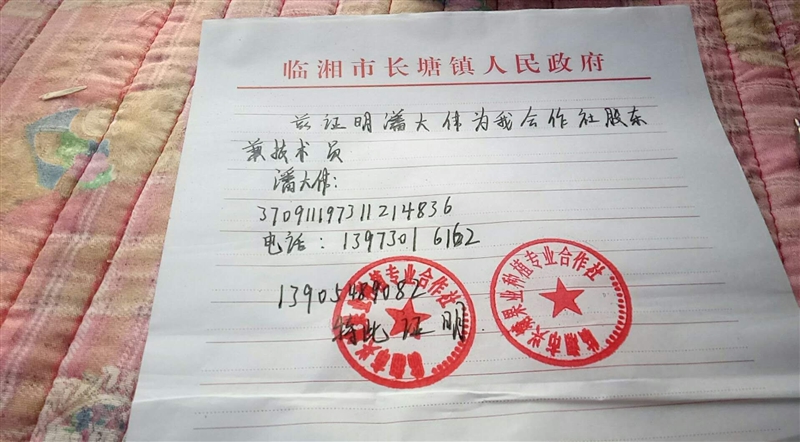 临湘市长塘镇人民政府
兹证明潘大伟为我合作社股东
兼技术员
潘大伟：
370911197311214836
电话：13973016162
13905489082
特此证明.
果业种植专业合作社
临湘市兴
种植专业合作社
临湘市兴